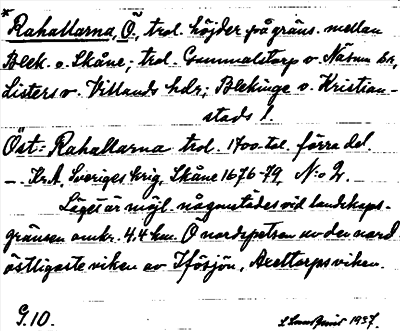 * Rahallarna, Ö, trol. höjder på gräns. mellan
Blek. o. Skåne; trol. Gummalstorp o. Näsum sr,
Listers o. Villands hdr; Blekinge o. Kristian-
stads l.
Öst- Rahallarna trol. 1700-tal. förra del.
— Kr.A, Sveriges krig, Skåne 1676-79, N:o 2.
Läget är möjl. någonstädes vid landskaps-
gränsen omkr. 4,4 km. O nordspetsen av den nord
östligaste viken av Ifösjön, Axeltorpsviken.
G.10. 1937.